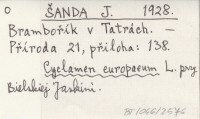 O ŠANDA J. 1928.
Brambořík v Tatrách. —
Příroda 21, příloha: 138.
Cyclamen europaeum L. przy
Bielskiej Jaskini.